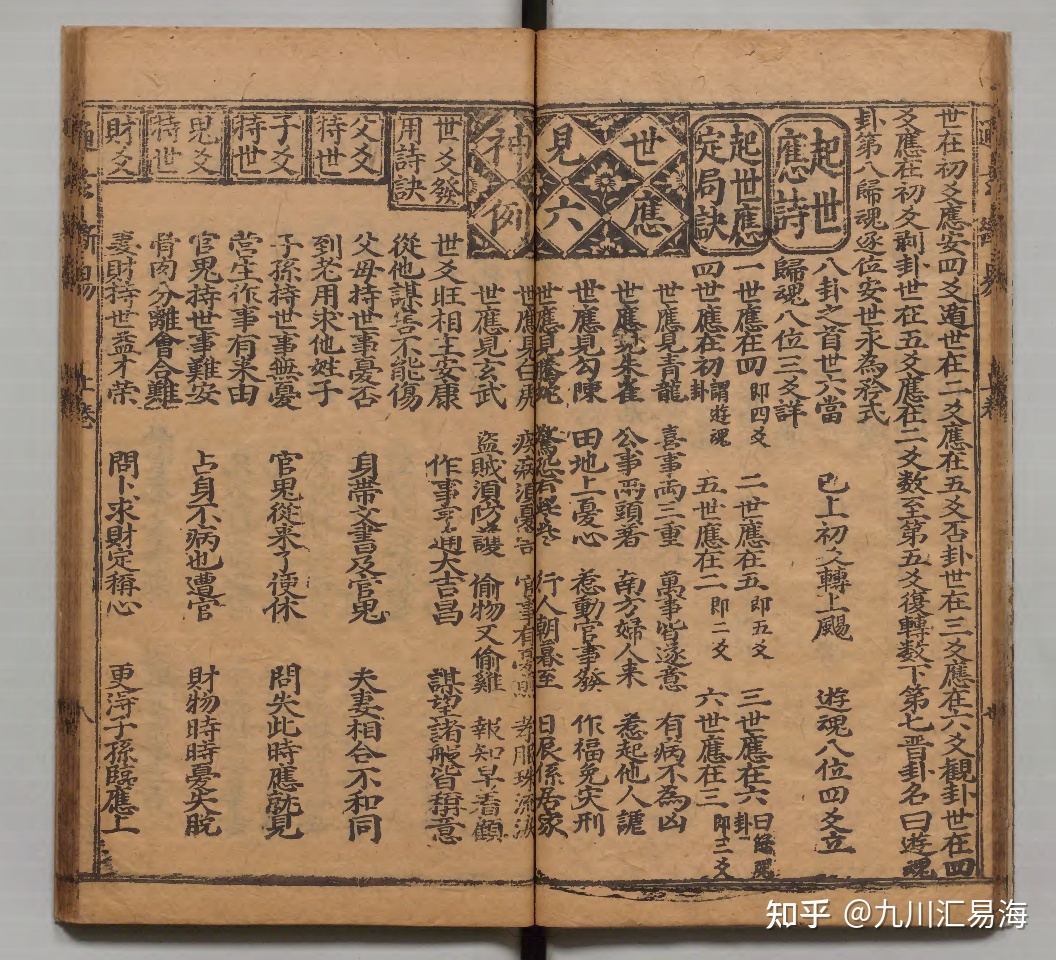 世在初爻應安四爻遁世在二爻應在五爻否卦世在三爻應在六爻觀卦世在四
爻應在初爻剥卦世在五爻應在二爻数至第五爻復轉数下第七晋卦名曰遊魂
卦第八歸魂逐位安世永為矜式
起世應詩
八卦之首世六當 已上初爻轉上颺 遊魂八位四爻立
歸魂八位三爻詳
起世應定局訣
一世應在四 即四爻 二世應在五 即五爻 三世應在六 曰歸魂卦
四世應在初 謂遊魂卦 五世應在二 即二爻 六世應在三 即三爻
世應見六神例
世應見青龍 喜事両三重 萬事皆遂意 有病不為凶
世應見朱雀 公事両頭著 南方婦人来 惹起他人謔
世應見勾陳 田地上憂心 惹動官事發 作福免災刑
世應見螣蛇 行人朝暮至 日辰係居家
世應見白虎 疾病須憂 官事有 孝服
世應見玄武 盗賊須防護 偷物又偷雞 報知早看顧
世爻發用詩訣
世爻旺相主安康 作事亨通大吉昌 謀望諸般皆稱意
從他謀害不能傷
父爻持世
父母持世事憂否 身帶文書及官鬼 夫妻相合不和同
到老用求他姓子
子爻持世
子孫持世事無憂 官鬼從来了便休 問失此時應就見
營生作事有来由
鬼爻持世
官鬼持世事難安 占身不病也遭官 財物時時憂失脫
骨肉分離會合難
財爻
妻財持世益才荣 問卜求財定稱心 更淂子孫臨應上
上卷
八
知乎 @九川汇易海